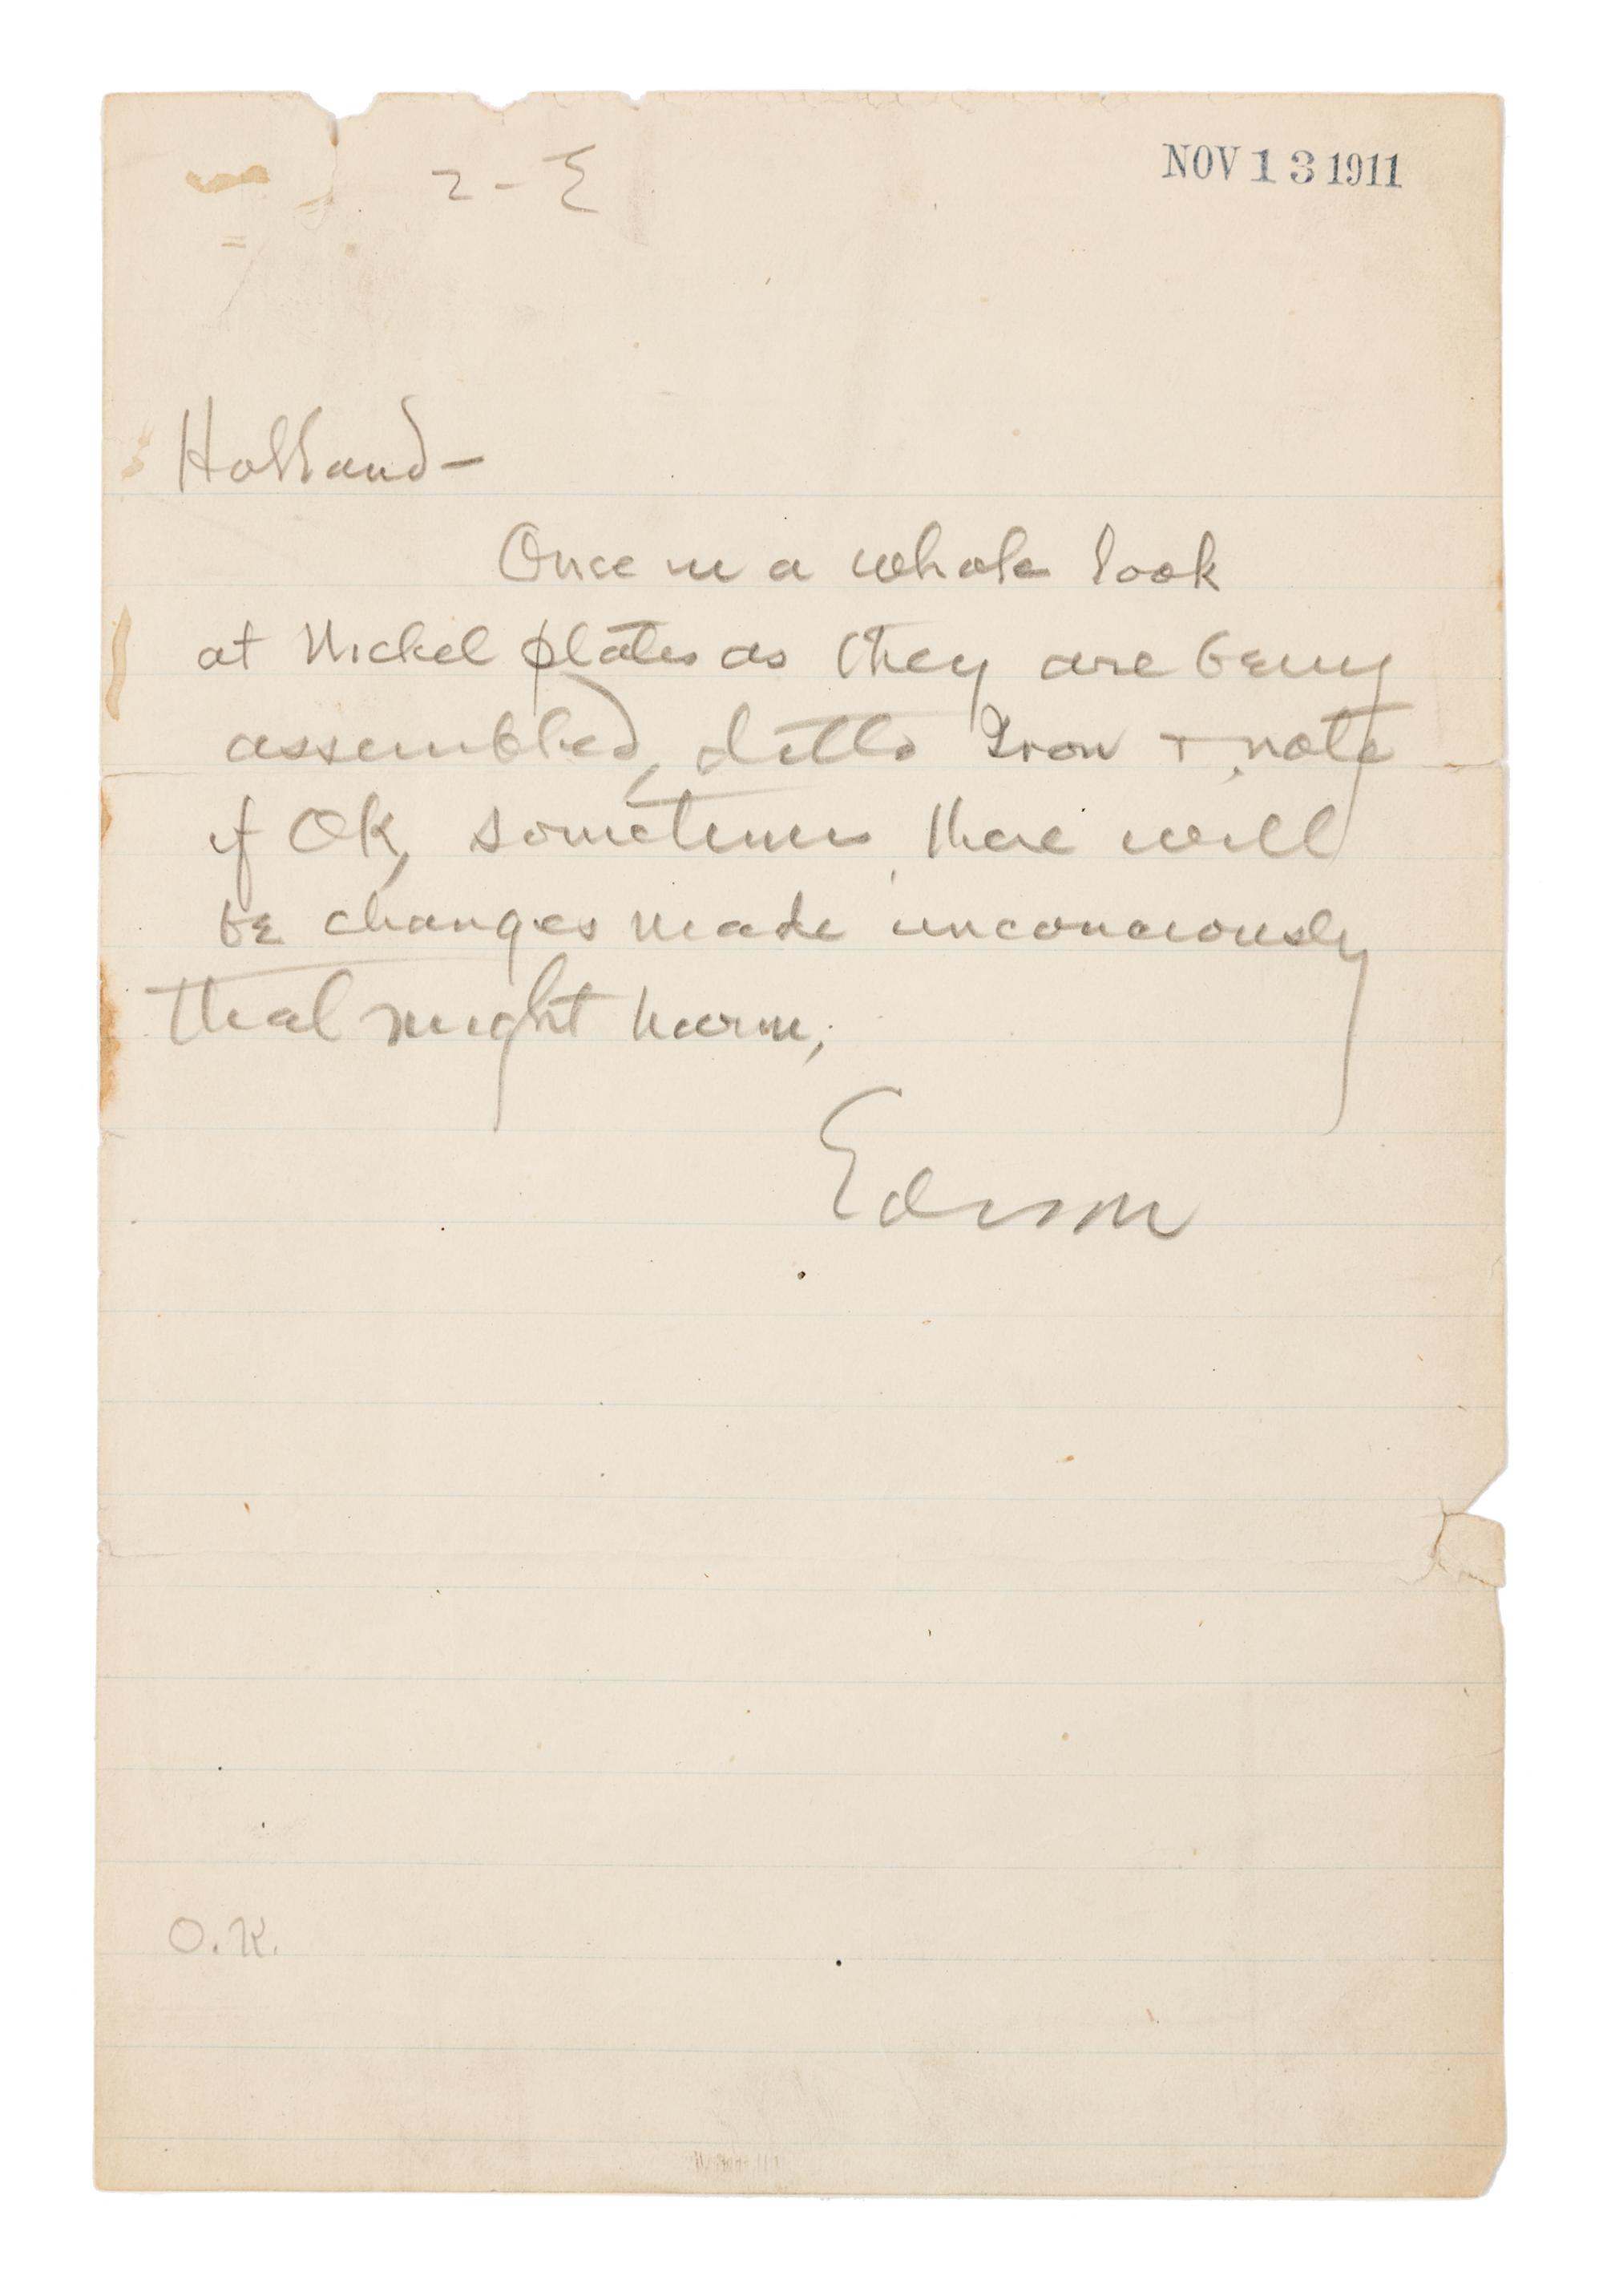 2-E
NOV 13 1911
Holland-
Once in a whole look
at Nickel plates as they are being
assembled, ditto Iron + note
if OK, sometimes there will
be changes made unconciously
that might harm,
Edison
O.K.